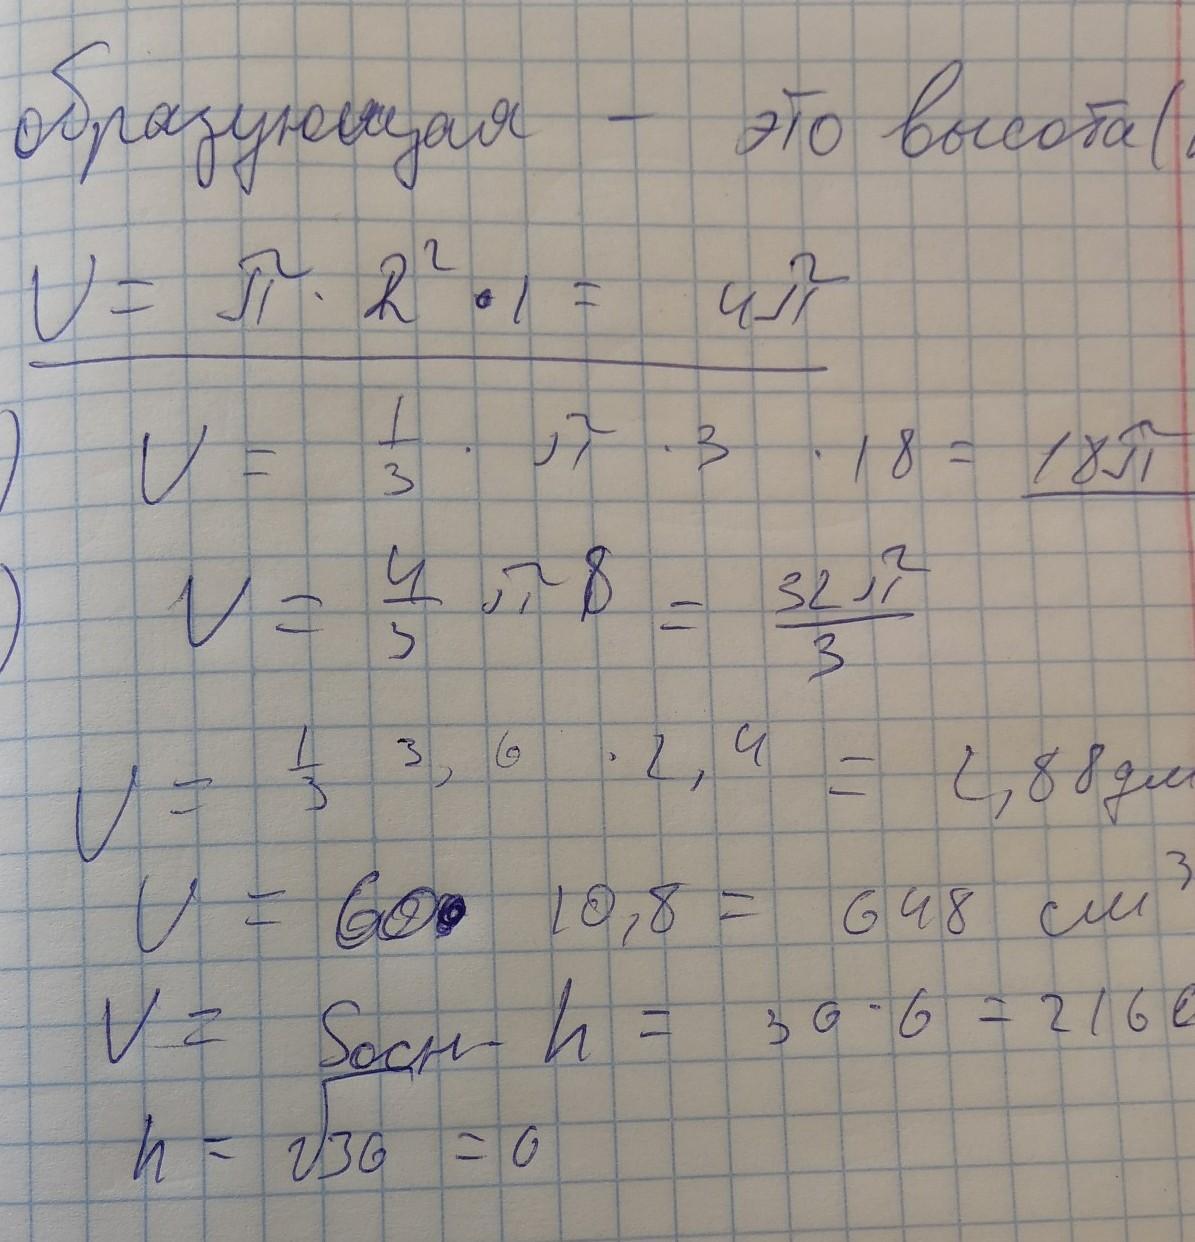 образующая - это высота(
V = π · 2² · 1 = 4π
) V = 1/3 · π · 3 · 18 = 18π
) V = 4/3 π 8 = 32π/3
V = 1/3 3,6 · 2,4 = 2,88 дм
V = 60 · 10,8 = 648 см³
V = Sосн h = 36 · 6 = 216 с
h = √36 = 6